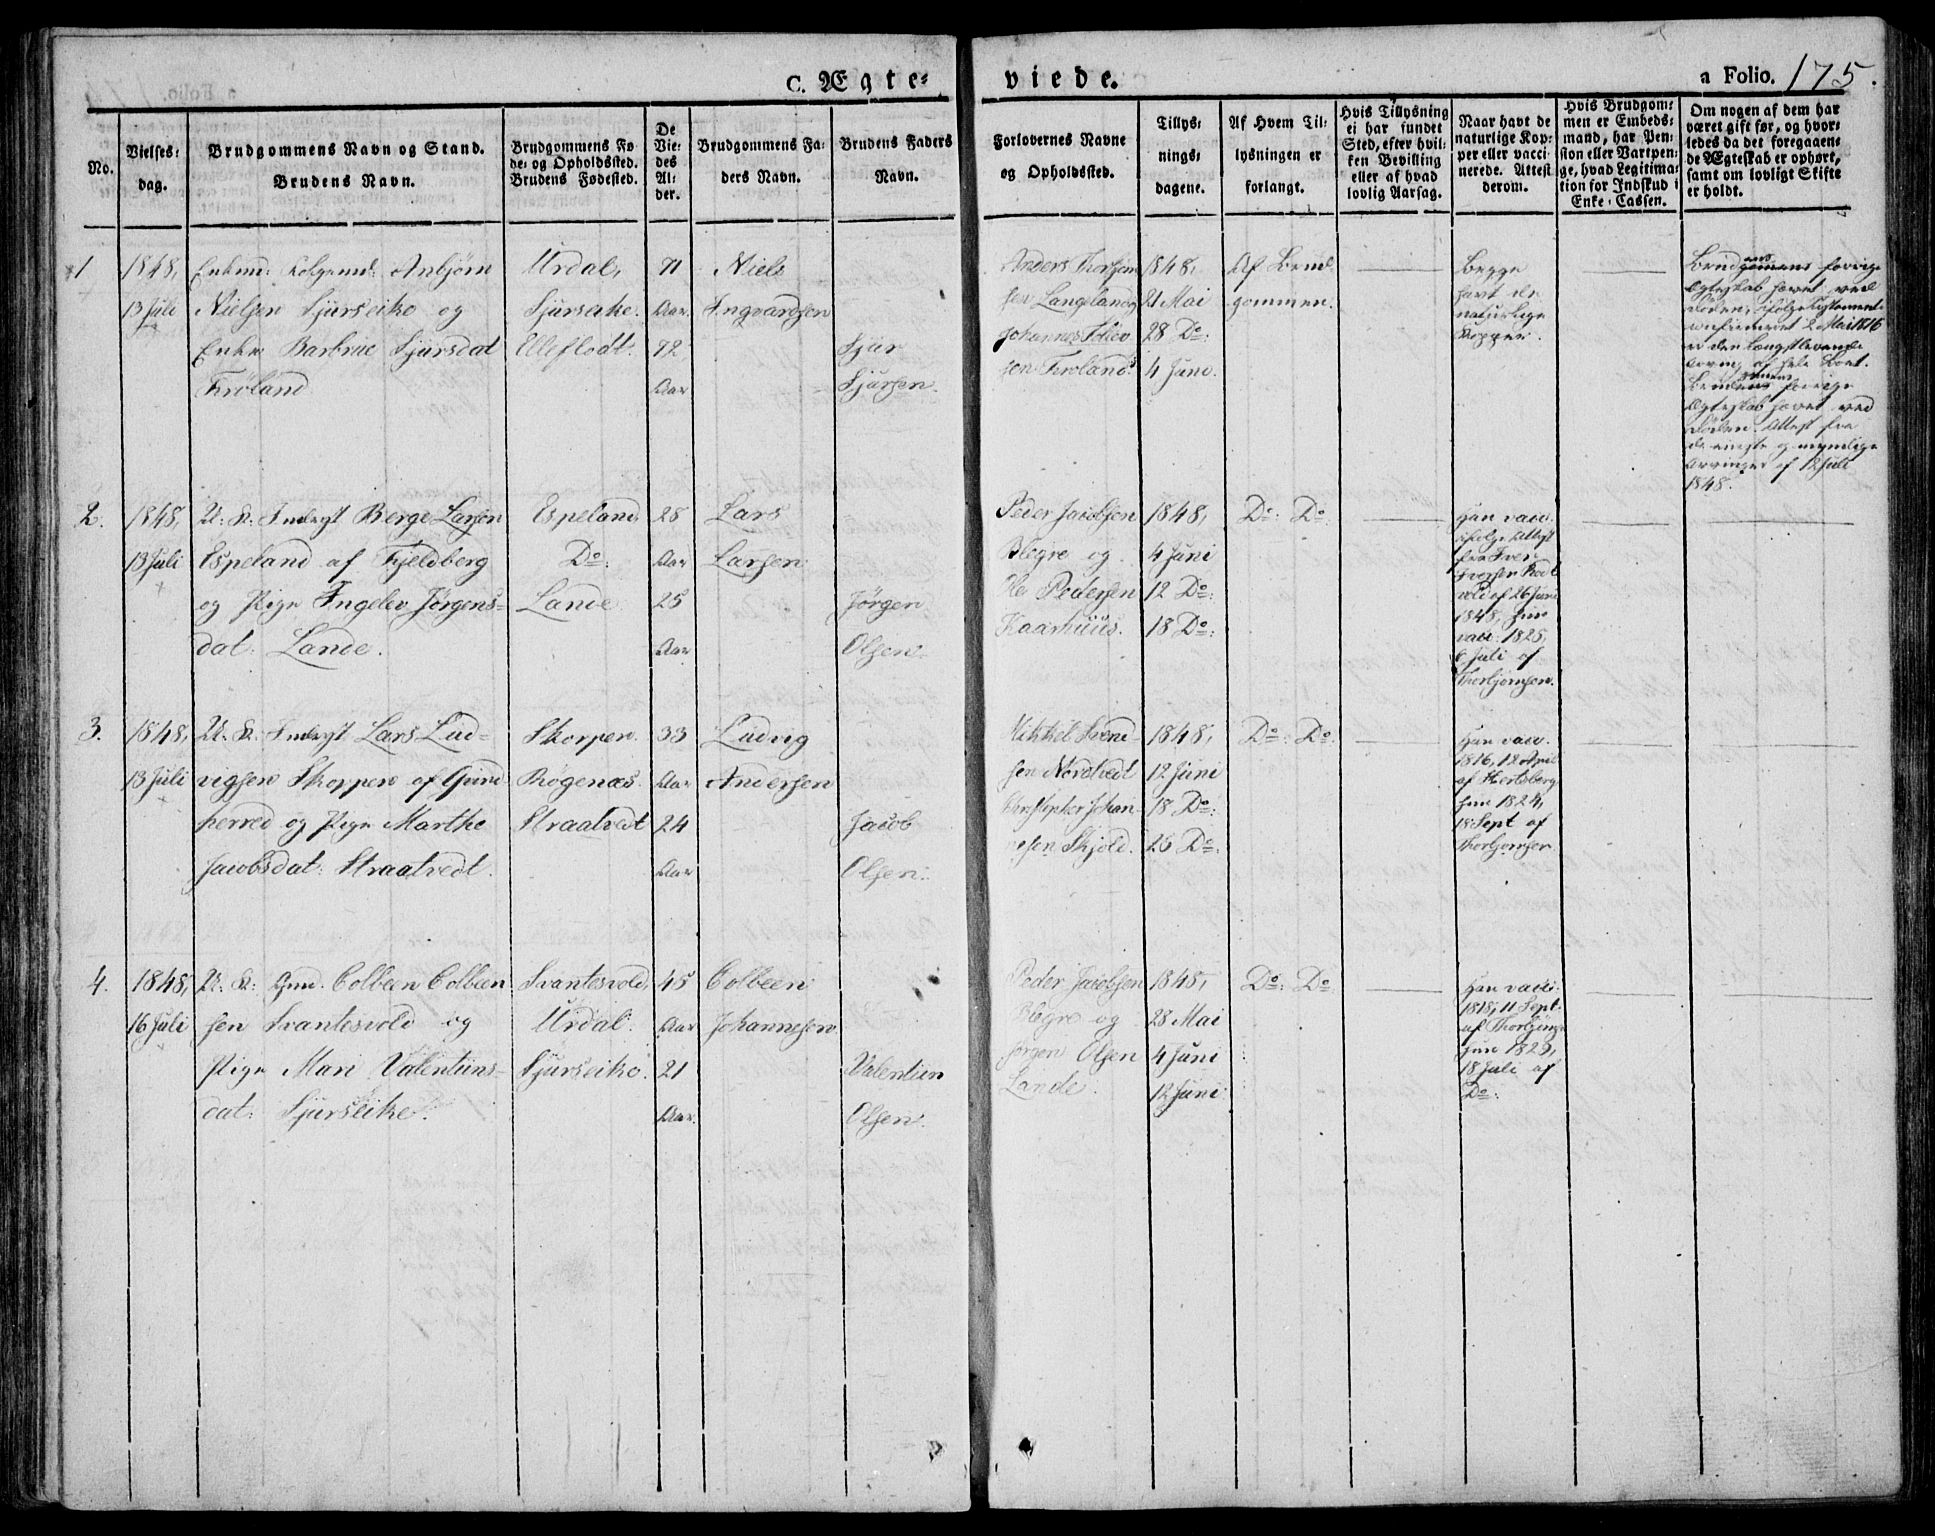 C. Ægte=
viede.
a Folio. 175.
No.
Vielses=
dag.
Brudgommens Navn og Stand.
Brudens Navn.
Brudgommens Fø=
de= og Opholdssted.
Brudens Fødested.
De
Vie=
des
Al=
der.
Brudgommens Fa=
ders Navn.
Brudens Faders
Navn.
Forlovernes Navne
og Opholdssted.
Tillys=
nings=
dagene.
Af Hvem Til=
lysningen er
forlangt.
Hvis Tillysning
ei har fundet
Sted, efter hvil=
ken Bevilling
eller af hvad
lovlig Aarsag.
Naar havt de
naturlige Kop=
per eller vacci=
nerede. Attest
derom.
Hvis Brudgom=
men er Embeds=
mand, har Pen=
sion eller Vartpen=
ge, hvad Legitima=
tion for Indskud i
Enke=Cassen.
Om nogen af dem har
været gift før, og hvor=
ledes da det foregaaen=
de Ægteskab er ophørt,
samt om lovligt Skifte
er holdt.
1
1848,
13 Juli
Enkmd: Anbjørn
Nielsen Sjurseike og
Enke Barbrue Sjursdat
Frøland
Urdal,
Sjurseike.
Elleflodt.
71
Aar
72
Aar
Niels
Ingvardsen
Sjur
Sjursen.
Anders Thorbjørn
sen Langeland og
Johannes
sen Frøland.
1848,
21 Mai
28 Do:
4 Juni.
Af Brud
gommen.
Begge
havt de
naturlige
Kopper.
Brudgomens forrige
Ægteskab hævet ved
Døden, ifølge Testament
confirmeret 2 Mai 1816
er den Længstlevende
Arving af hele Boet.
Brudens forrige
Ægteskab hævet ved
Døden. Attest fra
de eneste og myndige
Arvinger af 12 Juli
1848.
2.
1848,
13 Juli
U: K: Inderst Berge Larsen
Espeland af Fjeldberg
og Pige Ingelev Jørgens=
dat: Lande.
Espeland
Do:
Lande
28
Aar
25
Aar
Lars
Larsen
Jørgen
Olsen.
Peder Jacobsen
Blegre og
Ole Pedersen
Kaarhuus.
1848,
4 Juni
12 Do:
18 Do:
Do: Do:
Han vacc.
ifølge Attest
fra Iver
Iversen
af 26 Juni
1848, hun
vacc: 1825,
6 Juli af
Thorbjørnsen.
3.
1848,
13 Juli
U: K: Inderst Lars Lud=
vigsen Skorpen af Qvind
herred og Pige Marthe
Jacobsdat: Straatvedt.
Skorpen.
Bøgenæs.
Straatvedt
33
Aar
24
Aar
Ludvig
Andersen
Jacob
Olsen.
Mikkel Svend
sen Nordtvedt
Christopher Johan
nesen Skjold.
1848,
12 Juni
18 Do:
25 Do:
Do: Do:
Han vacc.
1816, 12 April
af Hertsberg
hun 1824,
18 Sept af
Thorbjørnsen
4.
1848,
16 Juli
U: K: Gmd. Colbeen Colbeen
sen Svantesvold og
Pige Mari Valentins=
dat: Sjurseike.
Svantesvold,
Urdal.
Sjurseike.
45
Aar
21
Aar.
Colbeen
Johannesen
Valentin
Olsen.
Peder Jacobsen
Blegre og
Jørgen Olsen
Lande.
1848,
28 Mai
4 Juni
12 Juni
Do: Do
Han vacci:
1818, 11 Sept.
af Thorbjørnsen
hun 1829,
18 Juli af
Do: